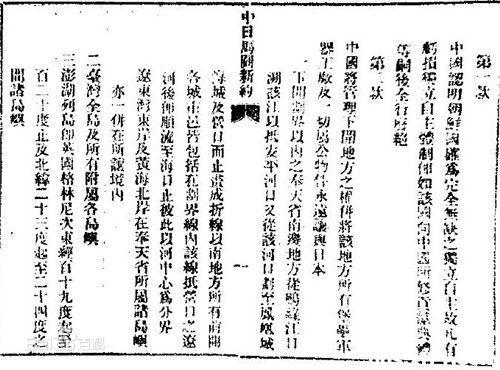 第一款
中國認明朝鮮國確爲完全無缺之獨立自主故凡有
虧損獨立自主體制即如該國向中國所修貢獻典禮
等嗣後全行廢絕
第二款
中國將管理下開地方之權併將該地方所有堡壘軍
器工廠及一切屬公物件永遠讓與日本
一下開劃界以內之奉天省南邊地方從鴨綠江口
溯該江以抵安平河口又從該河口劃至鳳凰城
中日馬關新約
一
海城及營口而止畫成折線以南地方所有前開
各城市邑皆包括在劃界線內該線抵營口之遼
河後即順流至海口止彼此以河中心爲分界
遼東灣東岸及黃海北岸在奉天省所屬諸島嶼
亦一併在所讓境內
二臺灣全島及所有附屬各島嶼
三澎湖列島即英國格林尼次東經百十九度起至
百二十度止及北緯二十三度起至二十四度之
間諸島嶼